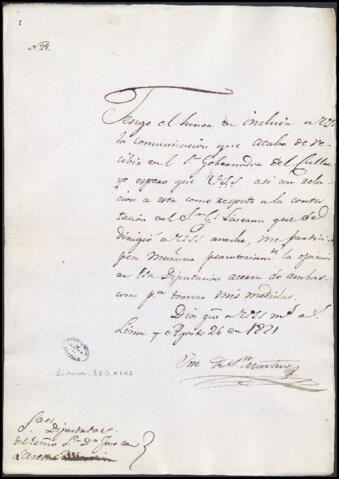 N. 29.
Tengo el honor de incluir a VSS
la comunicacion que acabo de re-
cibir del Sr Gobernador del Callao
yo espero que VSS. asi con rela-
cion a esta como respecto a la contes-
tacion del Sor que se
dirigió a VSS anoche, me partici-
pen mañana la opinion
de esa Diputacion acerca de ambas
cosas pa tomar mis medidas.
Dios gue a VSS ms as
Lima y Agosto 26 de 1821
Jose de Sn Martin
Lima, 300.
Sres Diputados
del Sr Dn Jose